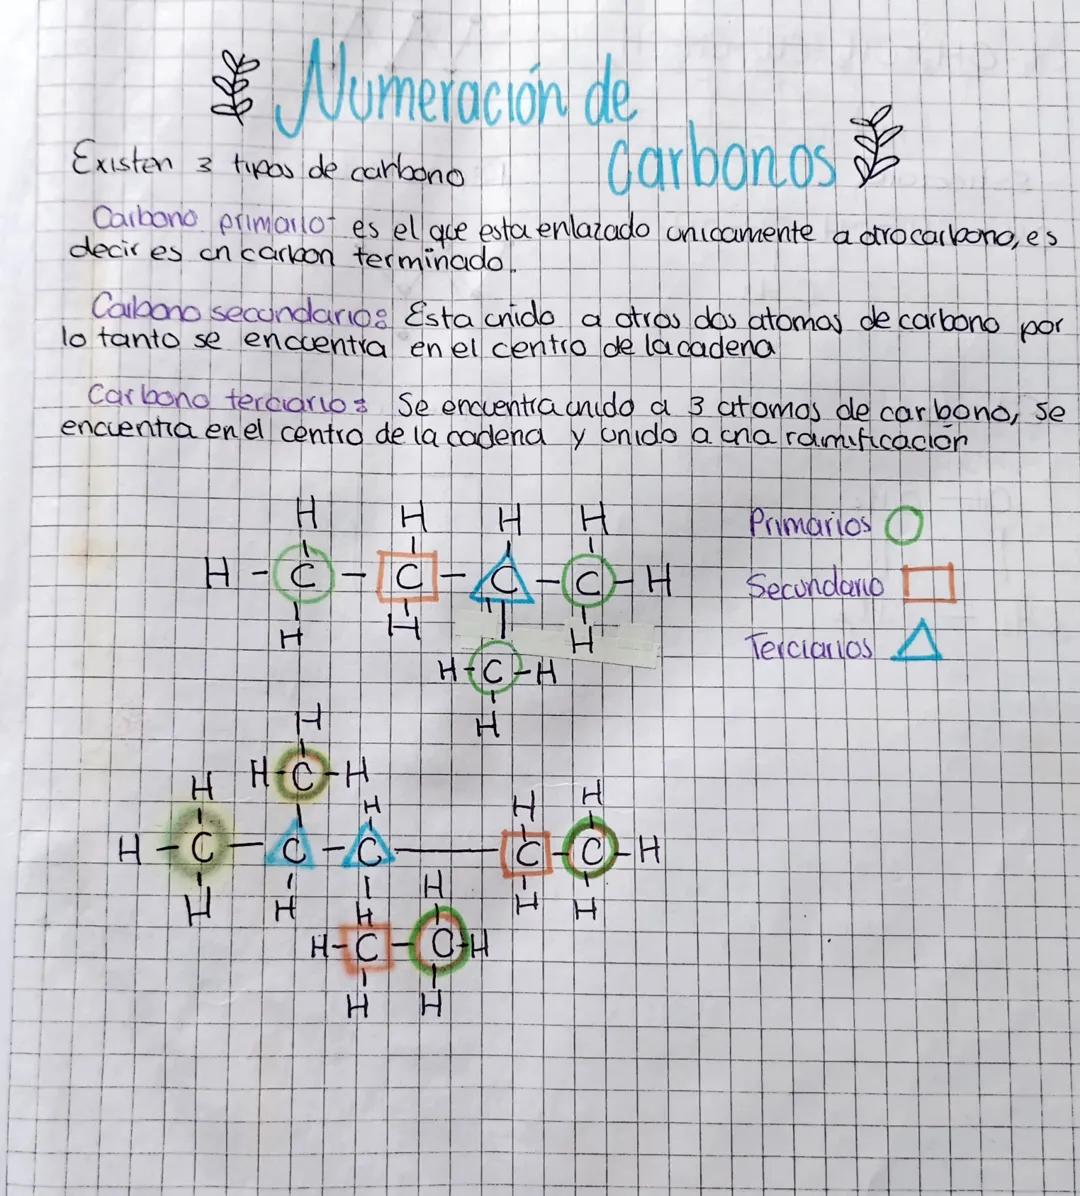 Numeración de
carbonos
Existen 3 tipos de carbono
Carbono primario- es el que esta enlazado unicamente a otro carbono, es
decir es un carbon terminado.
Carbono secundario: Esta unido a otros dos atomos de carbono por
lo tanto se encuentra en el centro de la cadena
Carbono terciario: Se encuentra unido a 3 atomos de carbono, se
encuentra en el centro de la cadena y unido a una ramificación
H H H H
H - C - C - C - C - H
H H H
H - C - H
H
Primarios
Secundario
Terciarios
H
H - C - H
H H H H
H - C - C - C - C - C - H
H H H H H H
H - C - C - H
H H